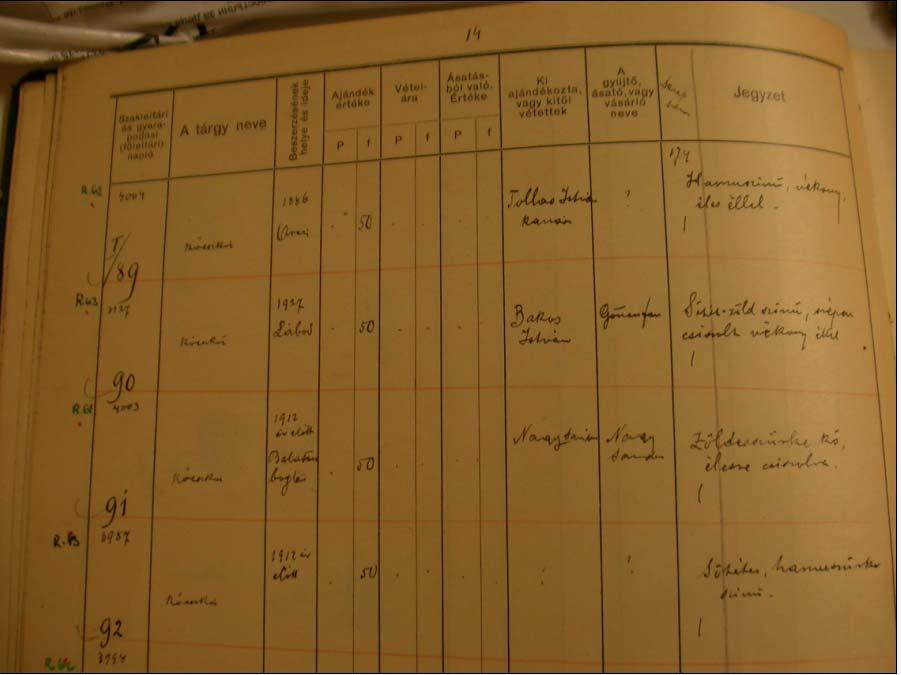 14
Szakleltári
és gyara-
podási
(főleltári)
napló
A tárgy neve
Beszerzésének
helye és ideje
Ajándék
értéke
P f
Vétel-
ára
P f
Ásatás-
ból való.
Értéke
P f
Ki
ajándékozta,
vagy kitől
vétettek
A
gyűjtő,
ásató, vagy
vásárló
neve
Jegyzet
4004
I/89
1886
50
István
kanász
?
Hamuszínű, vékony,
éles éllel.
1
R.63
90
1927
Lábod
50
Bakos
István
Sötét-zöld színű, szépen
csiszolt vékony éllel
1
4003
91
1912
év előtt
Balaton
boglár
50
Nagy
Nagy
Sándor
Zöldesszürke kő,
élesre csiszolva.
1
3987
92
1912 év
előtt
50
Sötétes, hamuszürke
színű.
1
3994